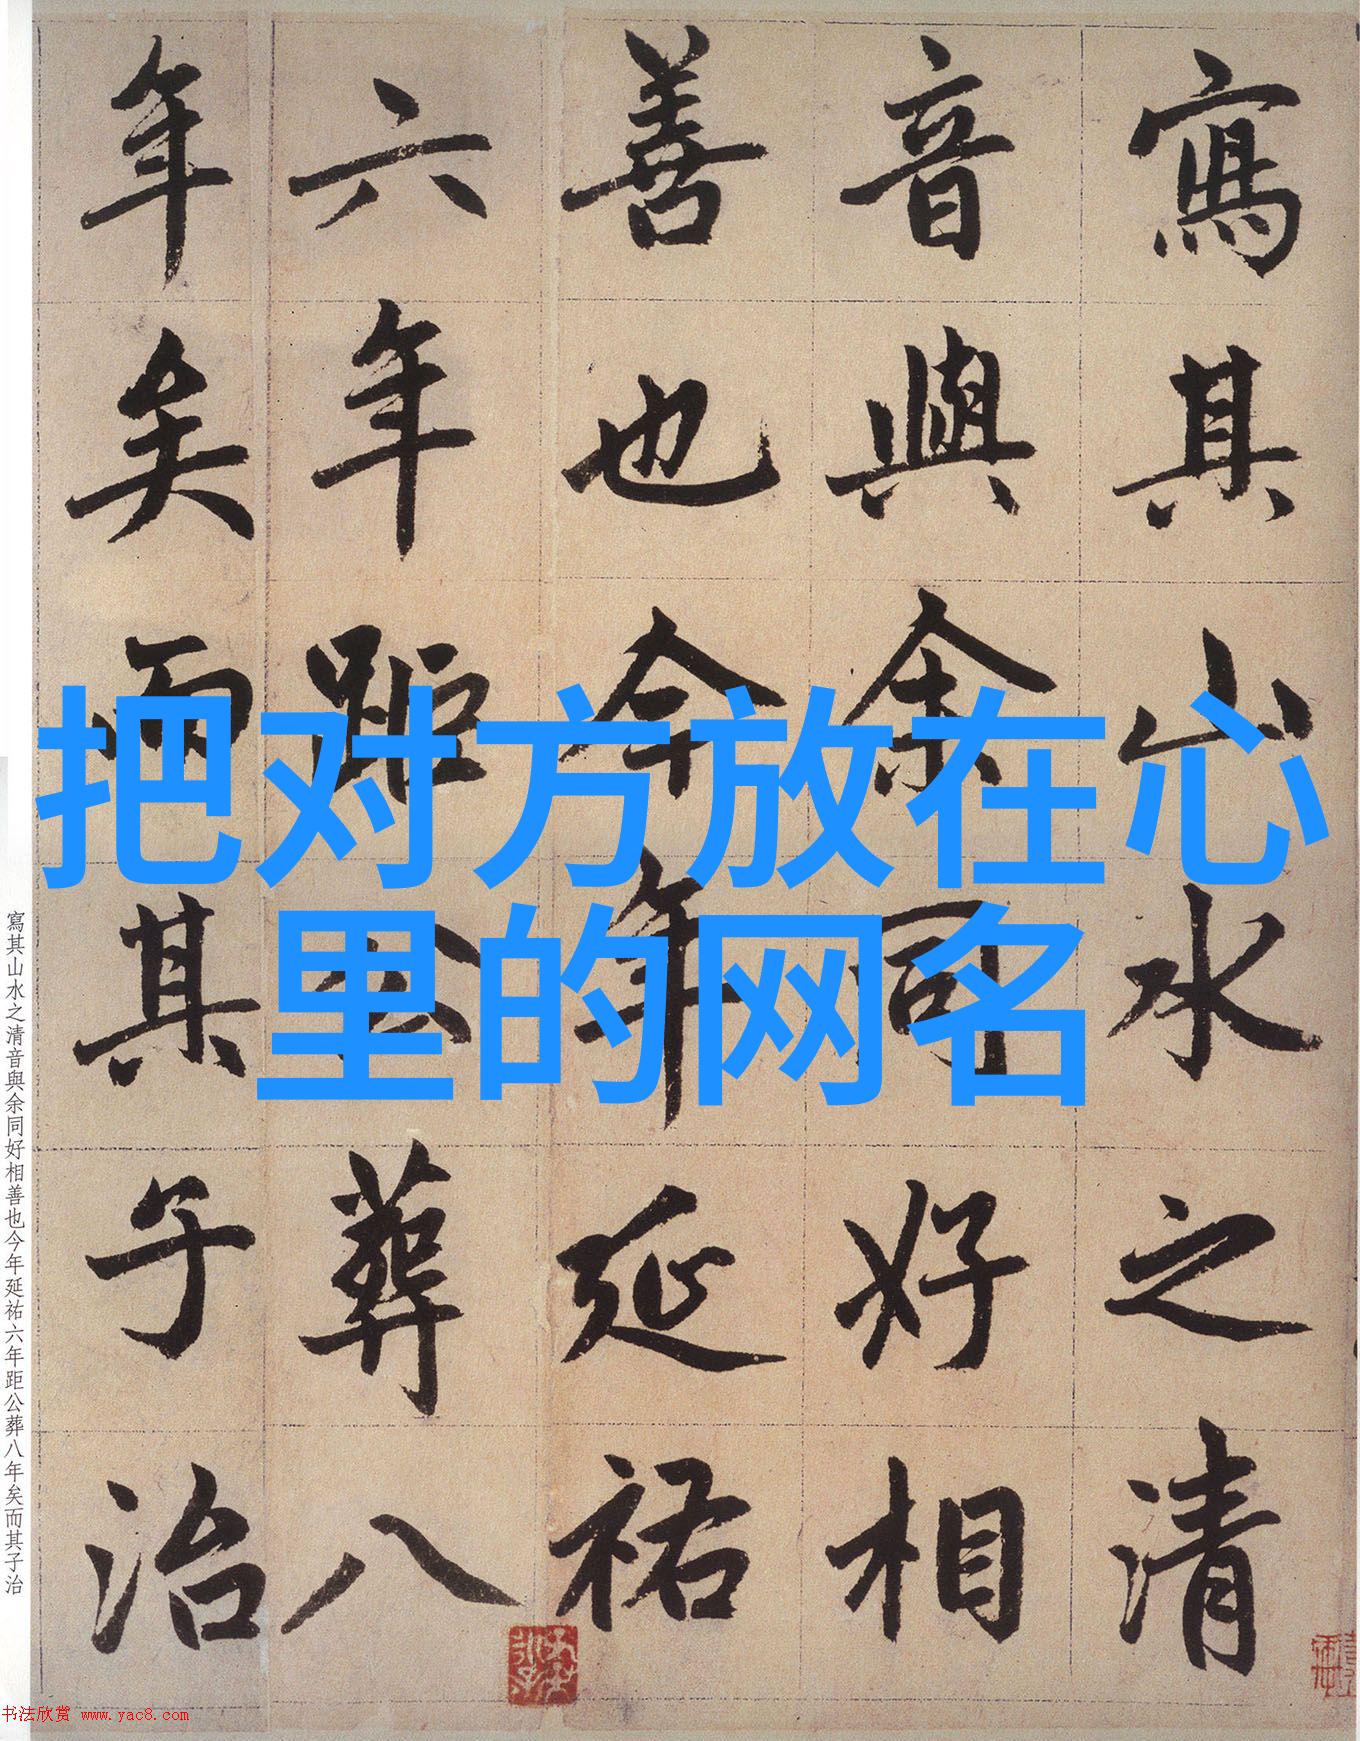 寫其山水之清
音與余同好相
善也今年延祐
六年距公葬八
年矣而其子治
把对方放在心
里的网名
寫其山水之清音與余同好相善也今年延祐六年距公葬八年矣而其子治
书法欣赏 www.yac8.com